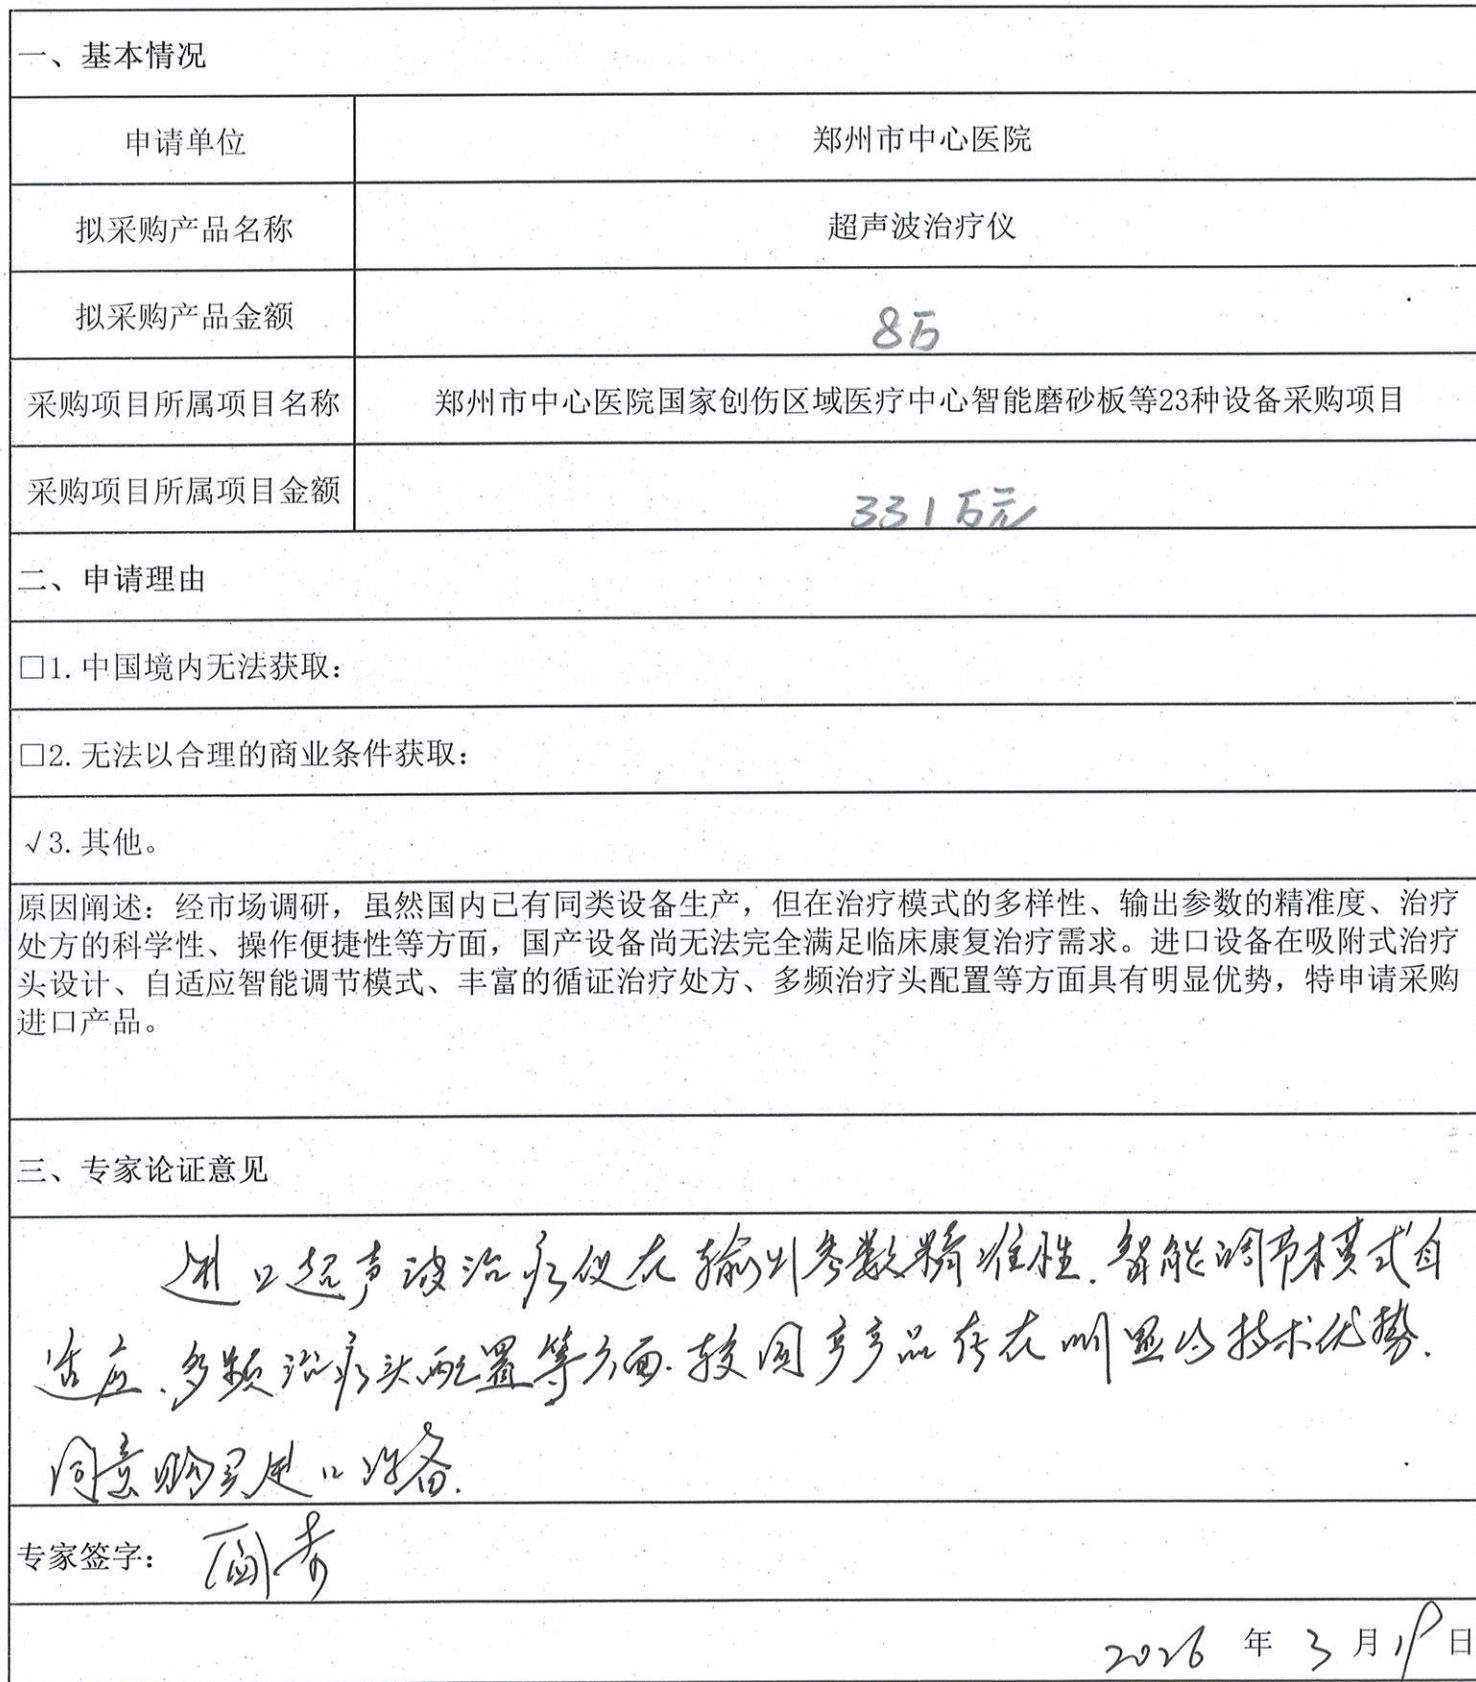 一、基本情况
申请单位 郑州市中心医院
拟采购产品名称 超声波治疗仪
拟采购产品金额 8万
采购项目所属项目名称 郑州市中心医院国家创伤区域医疗中心智能磨砂板等23种设备采购项目
采购项目所属项目金额 331万元
二、申请理由
□1.中国境内无法获取：
□2.无法以合理的商业条件获取：
√3.其他。
原因阐述：经市场调研，虽然国内已有同类设备生产，但在治疗模式的多样性、输出参数的精准度、治疗
处方的科学性、操作便捷性等方面，国产设备尚无法完全满足临床康复治疗需求。进口设备在吸附式治疗
头设计、自适应智能调节模式、丰富的循证治疗处方、多频治疗头配置等方面具有明显优势，特申请采购
进口产品。
三、专家论证意见
进口超声波治疗仪在输出参数精准性、智能调节模式自
适应、多频治疗头配置等方面.较国产产品存在明显的技术优势.
同意购买进口设备.
专家签字：
2026 年 3 月 19 日